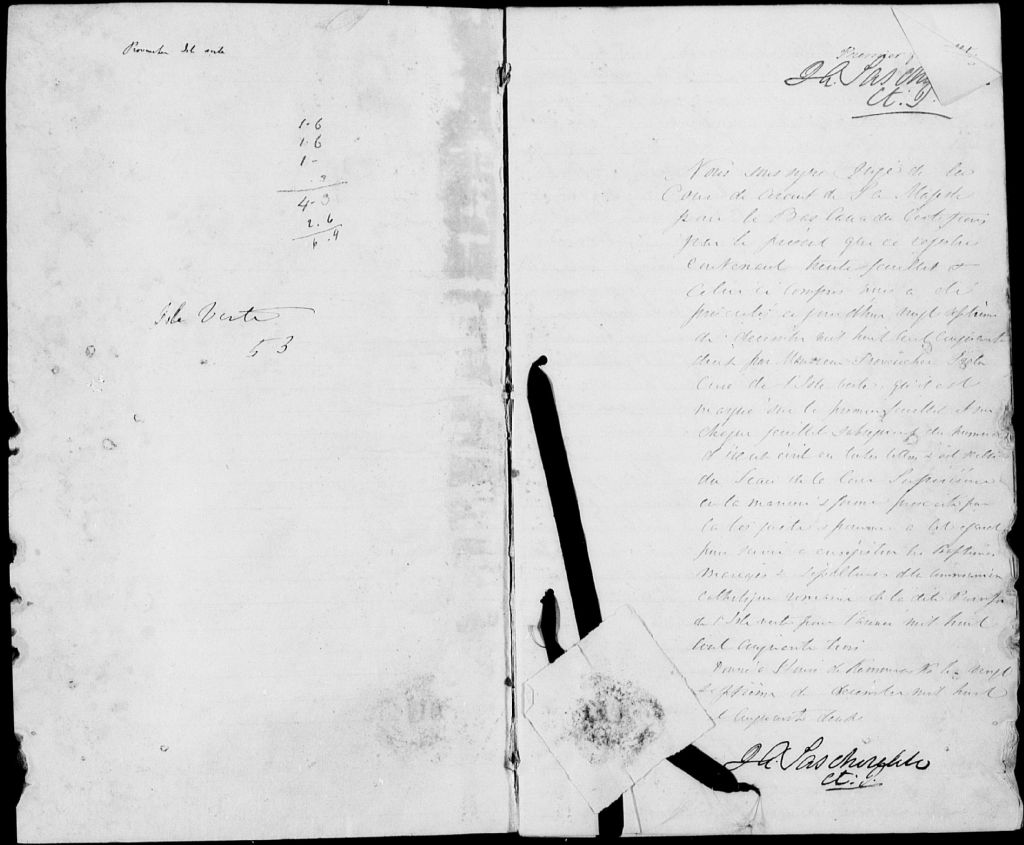 Isle Verte
1-6
1-6
1-
.9
4-3
2.6
6.9
Isle Verte
53
Premier
Nous soussigné Juge de la
Cour de Circuit de Sa Majesté
pour le Bas Canada Certifions
par le présent que ce registre
contenant trente feuillets &
celui ci compris nous a été
présenté ce jourd'hui vingt septième
de décembre mil huit cent cinquante
deux par Monsieur
Curé de l'Isle verte, qu'il est
marqué sur le premier feuillet & sur
chaque feuillet subséquent du numéro
en toutes lettres & est scellé
du Sceau de la Cour Supérieure
en la manière & forme prescrite par
la loi faite & pourvue à cet égard
pour servir à enregistrer les Baptêmes
Mariages & Sépultures de la communion
Catholique romaine de la dite Paroisse
de l'Isle verte pour l'année mil huit
cent cinquante trois
Donné à de Rimouski le vingt
septième de décembre mil huit
cent cinquante deux